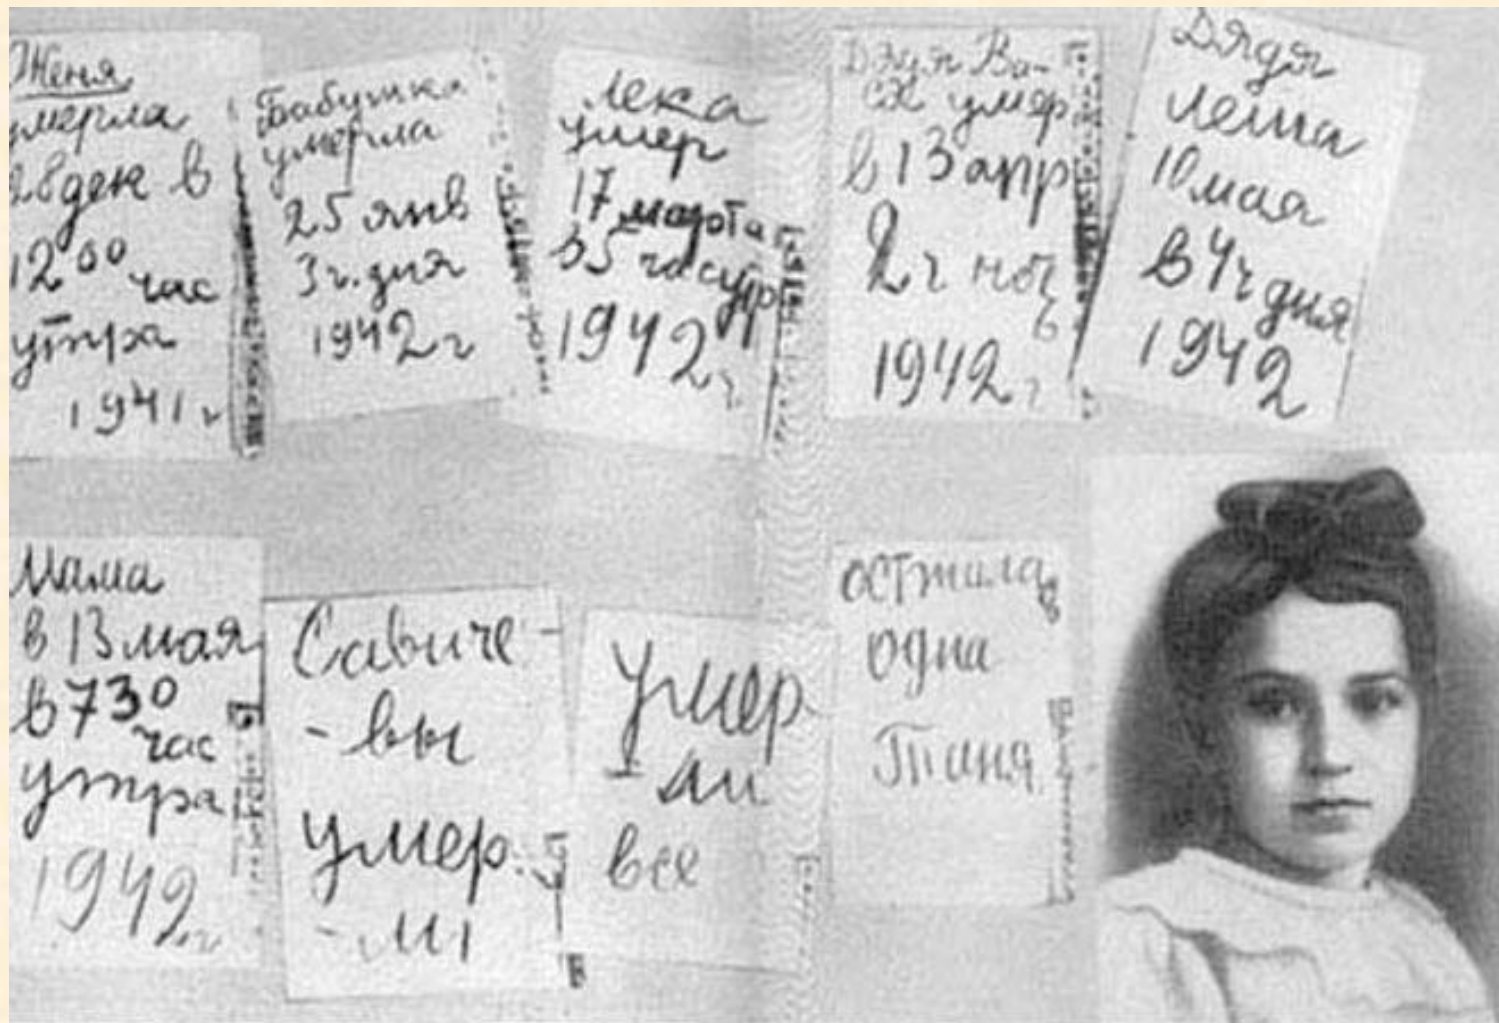 Женя
умерла
28 дек в
12 00 час
утра
1941 г
Бабушка
умерла
25 янв
3 ч. дня
1942 г
Лека
умер
17 марта
в 5 часутр
1942 г.
Дядя Ва-
ся умер
в 13 апр
2 ч ноч
ь
1942 г
Дядя
Леша
10 мая
в 4 ч дня
1942
Мама
в 13 мая
в 7 30
час
утра
1942 г
Савиче
- вы
умер.
- ли
Умер
- ли
все
осталас
одна
Таня